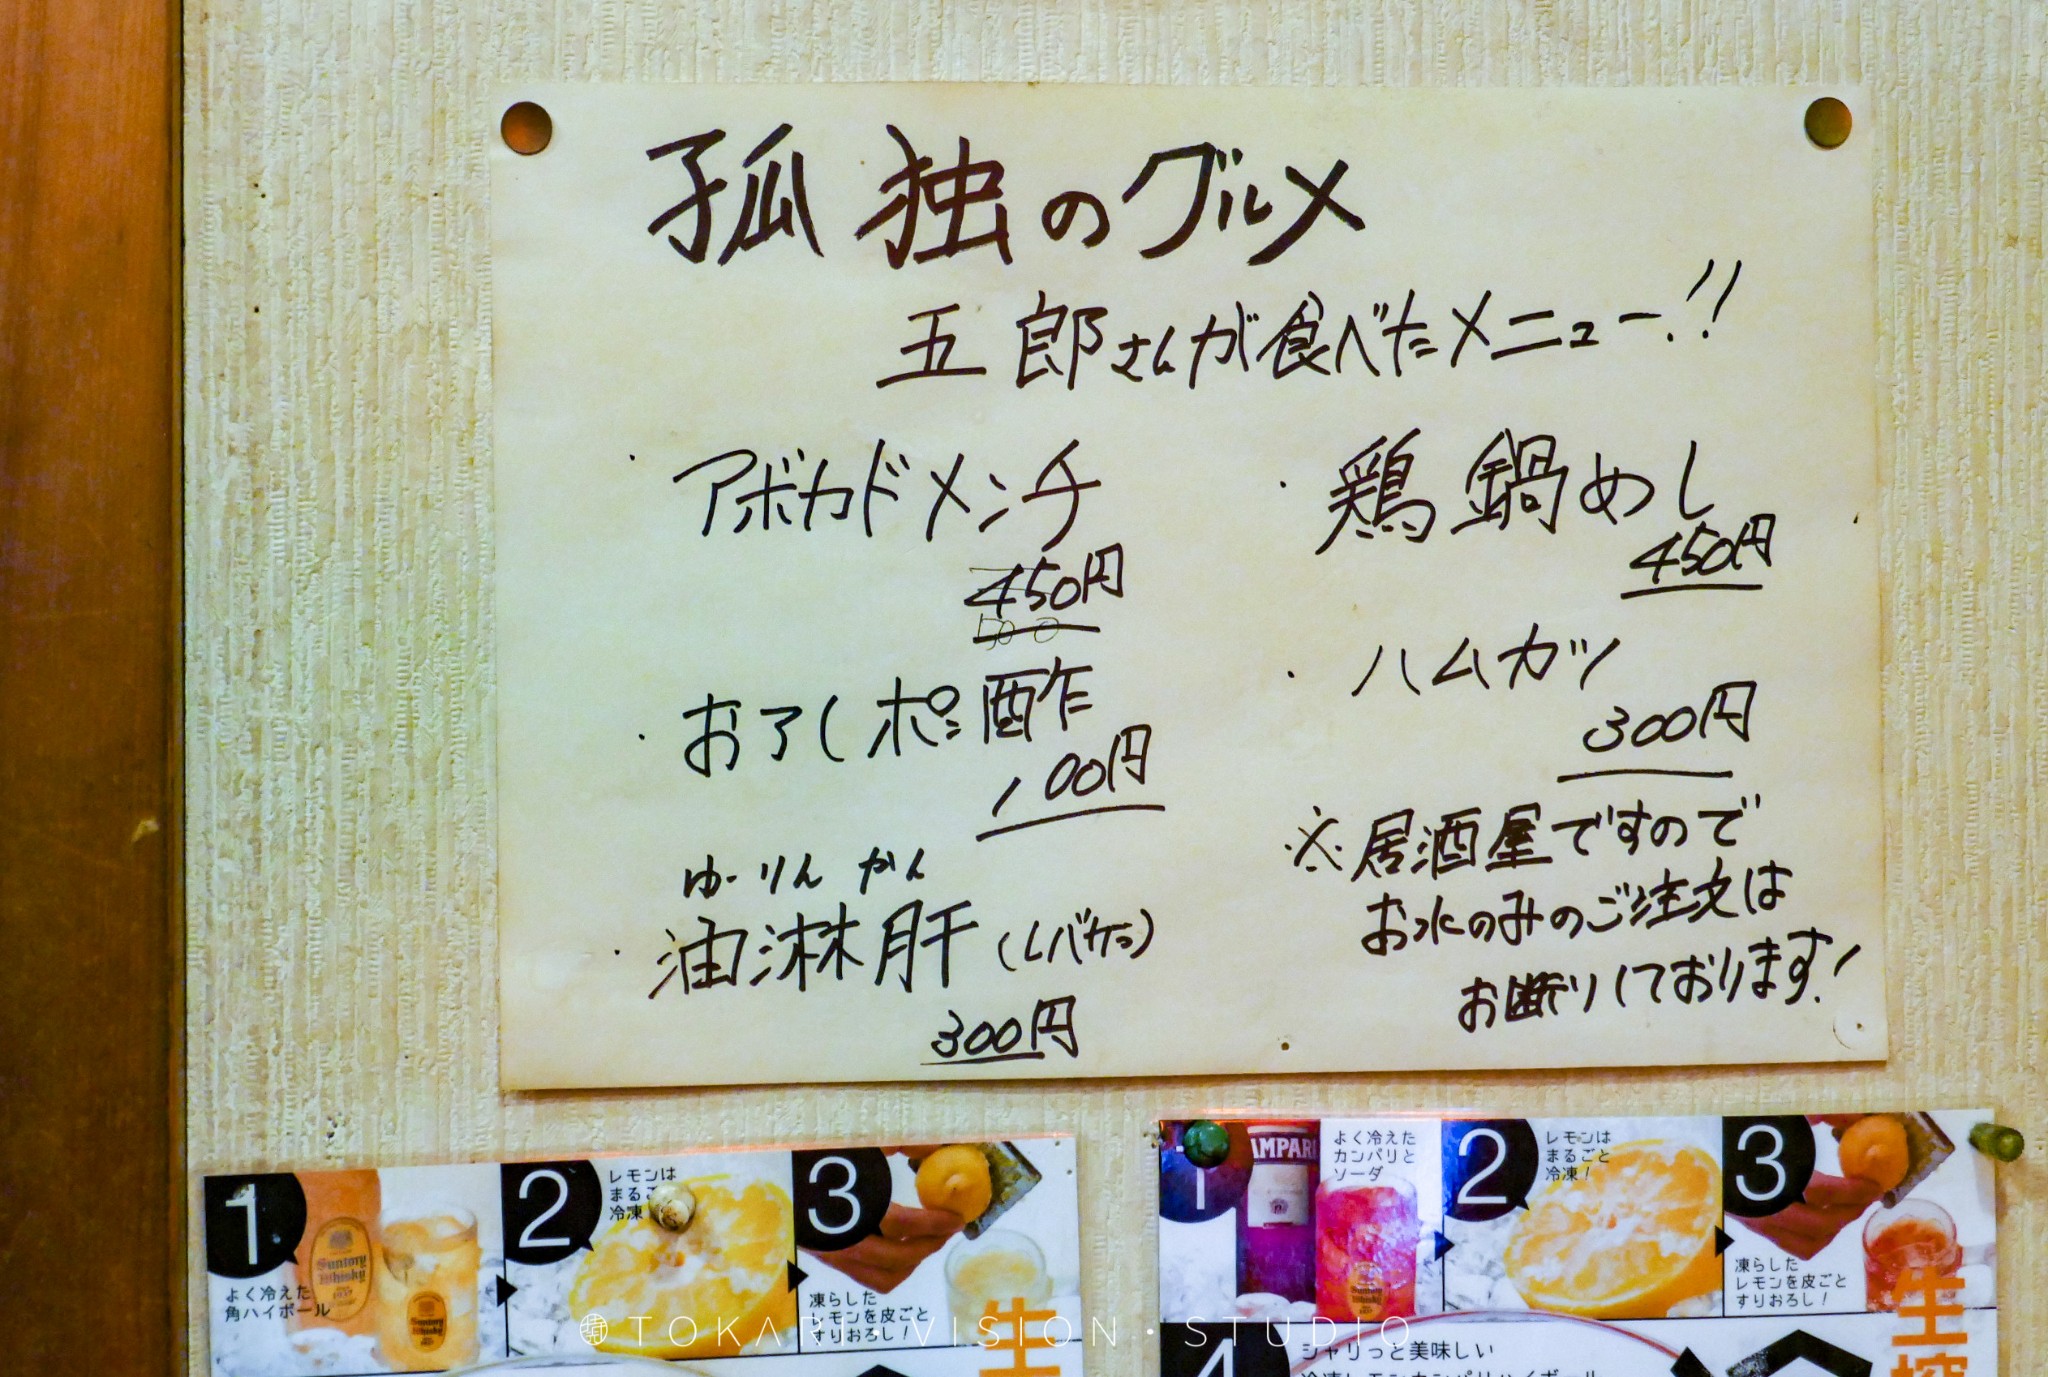 孤独のグルメ
五郎さんが食べたメニュー!!
・アボカドメンチ
450円
500
・おろしポン酢
100円
ゆーりんかん
・油淋肝(レバケン)
300円
・鶏鍋めし
450円
・ハムカツ
300円
※居酒屋ですので
お水のみのご注文は
お断りしております!
1
Suntory
Whisky
よく冷えた
角ハイボール
2
レモンは
まるご
冷凍
3
凍らした
レモンを皮ごと
すりおろし!
生
1
AMPARI
よく冷えた
カンパリと
ソーダ
2
レモンは
まるごと
冷凍!
3
凍らした
レモンを皮ごと
すりおろし!
生搾
4
シャリっと美味しい
冷凍レモンカンパリハイボール
TOKARI・VISION・STUDIO